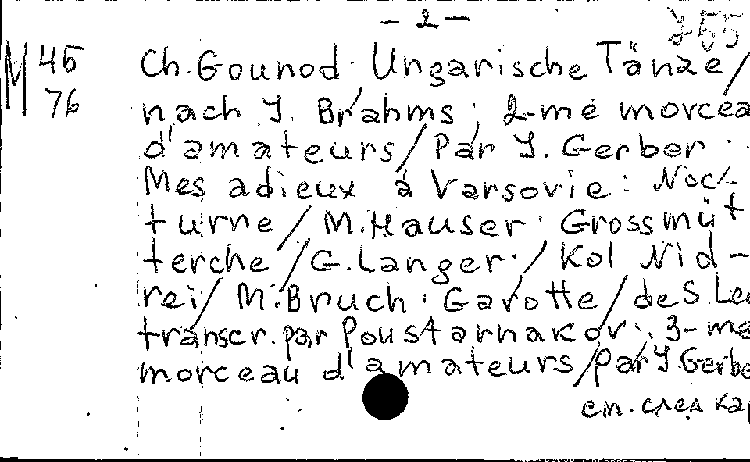 - 2 -
755
M 45
76
Ch. Gounod. Ungarische Tänze/
nach J. Brahms; 2-me morcea
d'amateurs/Par J. Gerber.
Mes adieux à Varsovie: Noc-
turne/M. Hauser. Grossmüt
terche/G. Langer./Kol Nid-
rei/M. Bruch. Gavotte/de S. Lee
transcr. par Poustarnakov.; 3-me
morceau d'amateurs/Par J Gerbe
см. след кар